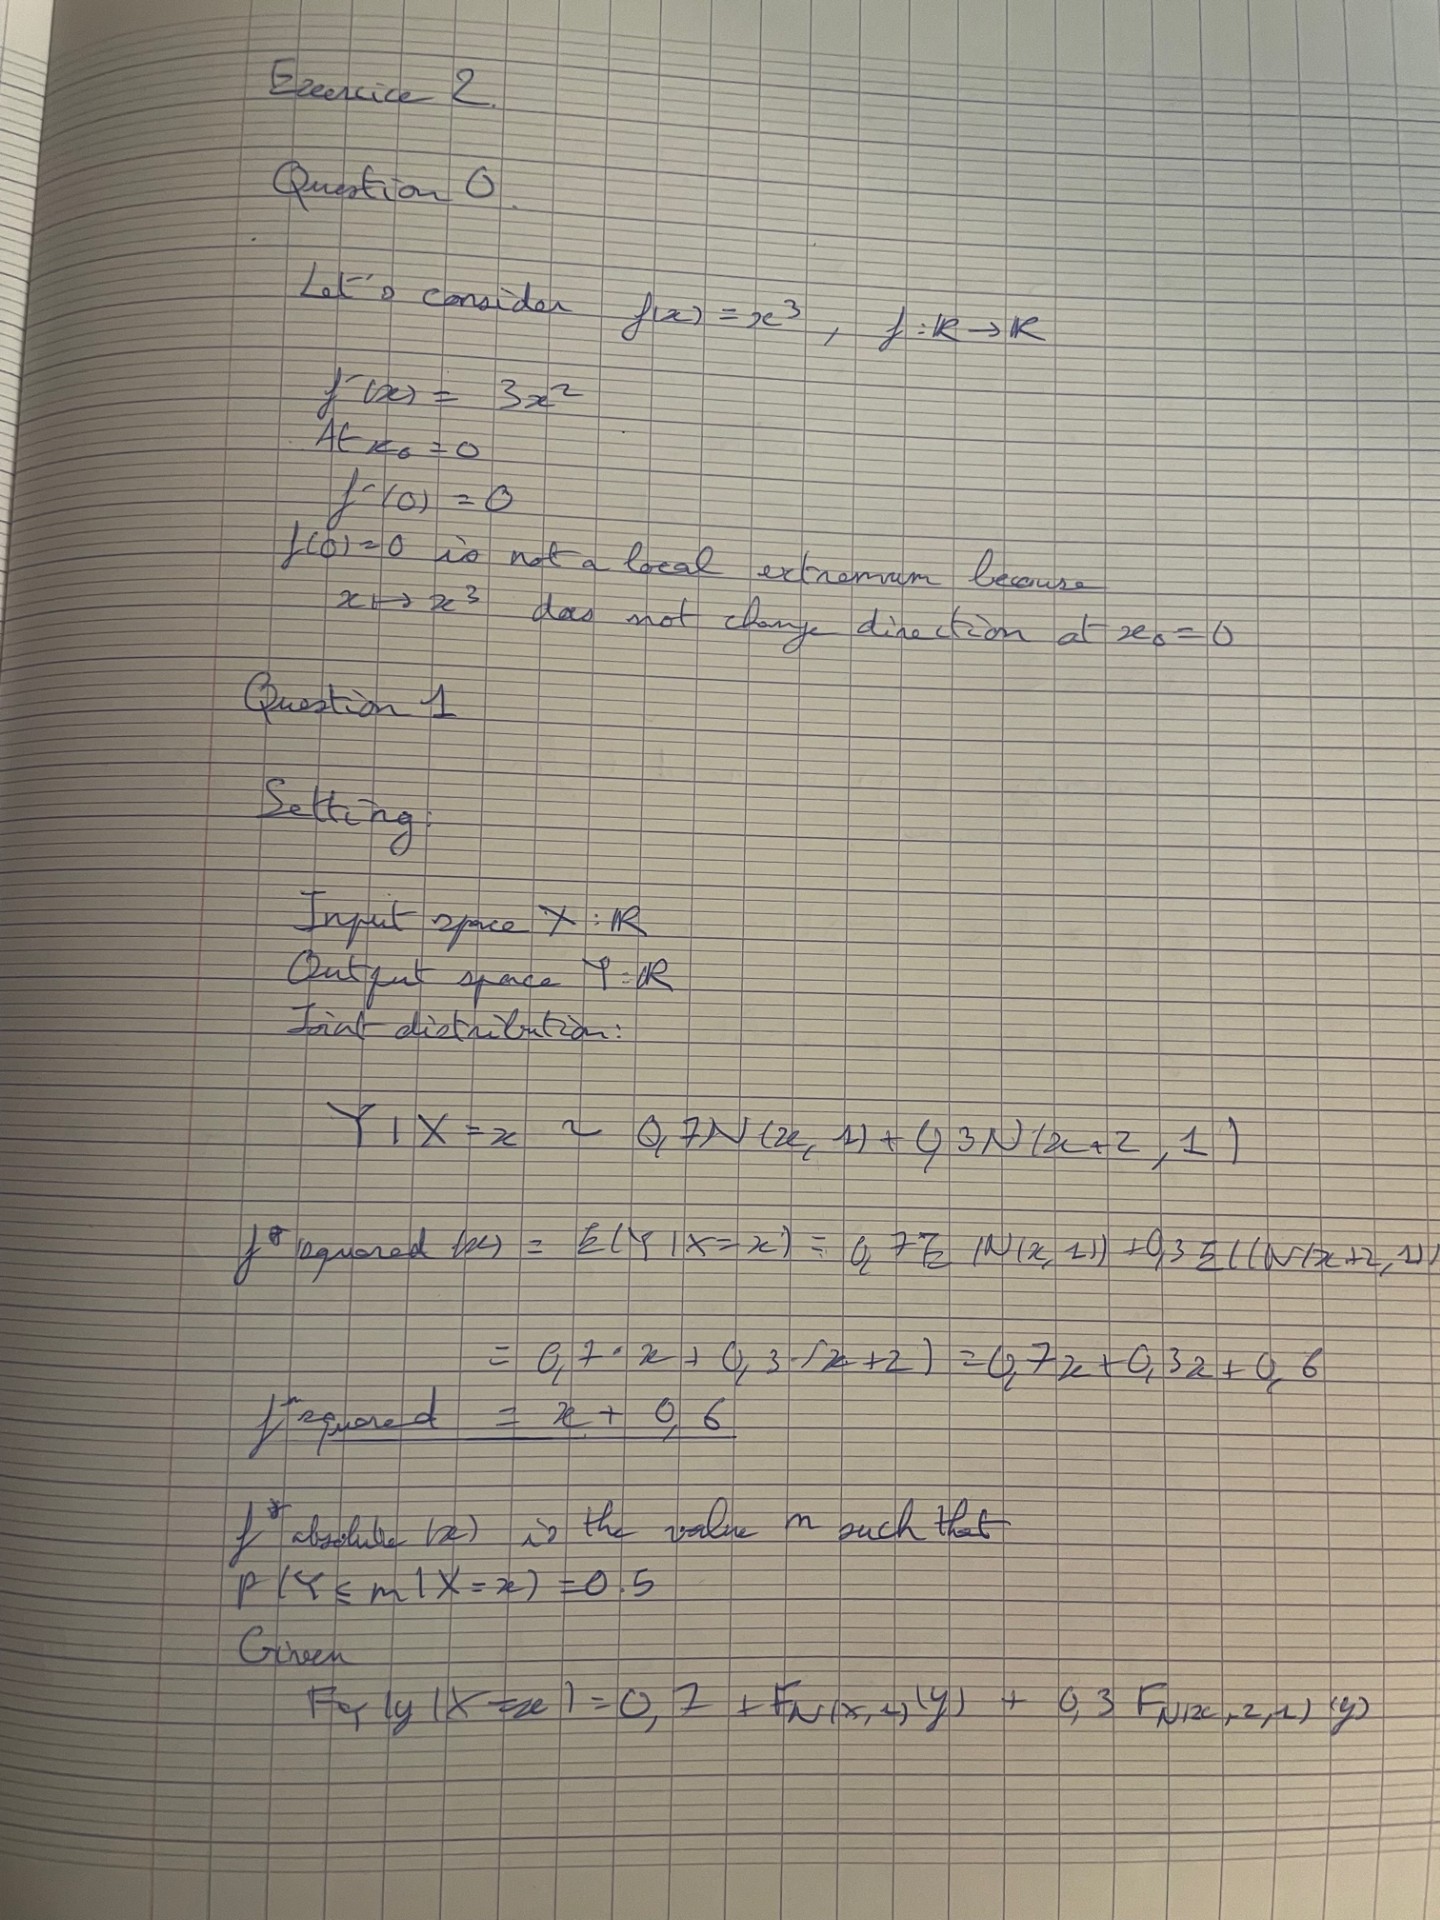 Exercice 2.
Question 0.
Let's consider f(x) = x³, f : ℝ → ℝ
f'(x) = 3x²
At x₀ = 0
f'(0) = 0
f(0) = 0 is not a local extremum because
x ↦ x³ does not change direction at x₀ = 0
Question 1
Setting:
Input space X : ℝ
Output space Y : ℝ
Joint distribution:
Y | X = x ~ 0,7N(x, 1) + 0,3N(x+2, 1)
f* squared (x) = E(Y | X = x) = 0,7E(N(x, 1)) + 0,3E((N(x+2, 1))
= 0,7 · x + 0,3 · (x+2) = 0,7x + 0,3x + 0,6
f* squared = x + 0,6
f* absolute (x) is the value m such that
P(Y ≤ m | X = x) = 0.5
Given
F_Y (y | X = x) = 0,7 + F_N(x, 1) (y) + 0,3 F_N(x+2, 1) (y)